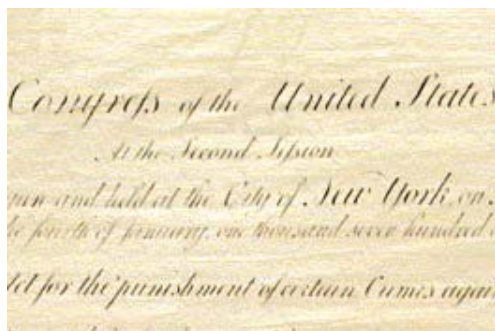 Congreſs of the United States
At the Second Seſsion
gun and held at the City of New York on
the fourth of January, one thousand seven hundred
Act for the punishment of certain Crimes again